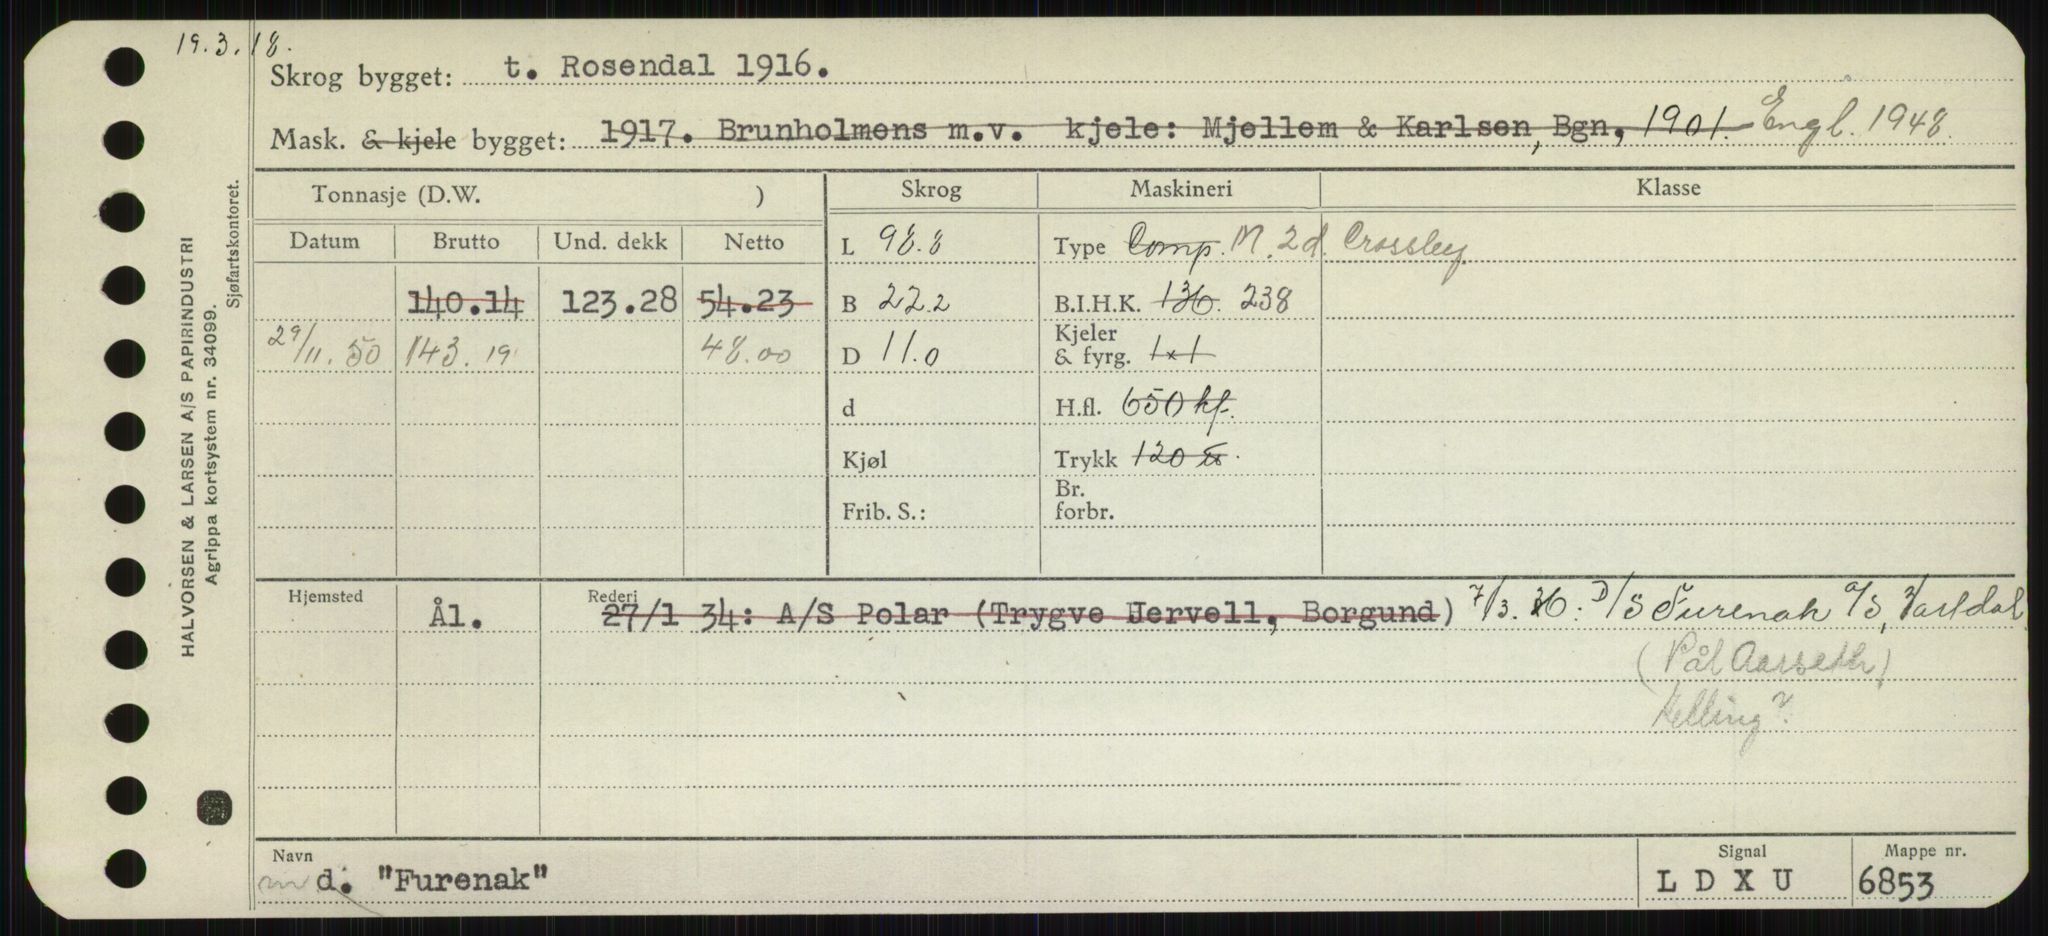 19.3.18.
Skrog bygget: t. Rosendal 1916.
Mask. & kjele bygget: 1917. Brunholmens m.v. kjele: Mjellem & Karlsen, Bgn, 1901. Engl. 1948.
Tonnasje (D.W. ) Skrog Maskineri Klasse
Datum Brutto Und. dekk Netto L 98.8 Type Comp. M. 2d. Crossley
140.14 123.28 54.23 B 22.2 B.I.H.K. 136. 238
29/11.50 143.19 48.00 D 11.0 Kjeler & fyrg. 1x1
d H.fl. 650 kf.
Kjøl Trykk 120
Frib. S.: Br. forbr.
Hjemsted Rederi
Ål. 27/1 34: A/S Polar (Trygve Jervell, Borgund) 7/3.36: D/S Furenak A/S, Vartdal
(Pål Aarseth)
Kelling?
Navn Signal Mappe nr.
m d. "Furenak" LDXU 6853
HALVORSEN & LARSEN A/S PAPIRINDUSTRI
Agrippa kortsystem nr. 34099.
Sjøfartskontoret.